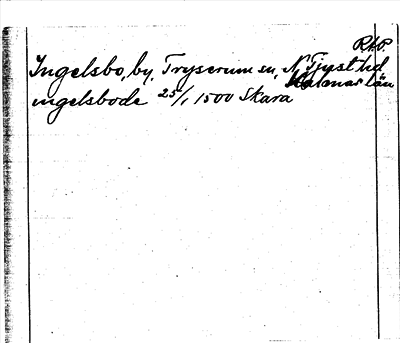 RAP.
Ingelsbo, by, Tryserum sn, N. Tjust hd
Kalmar län
ingelsbode 25/1 1500 Skara